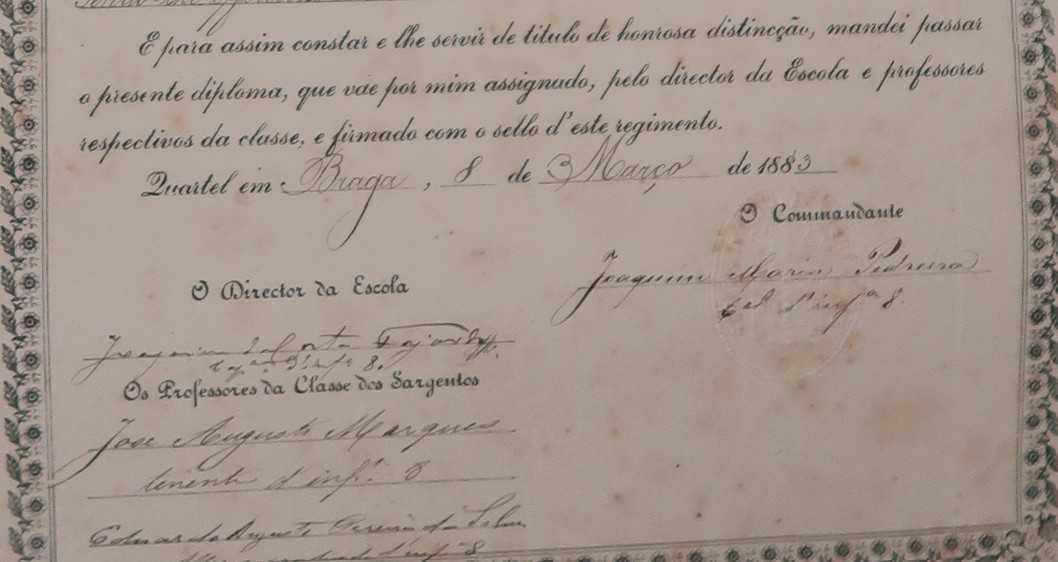 E para assim constar e lhe servir de titulo de honrosa distincção, mandei passar
o presente diploma, que vae por mim assignado, pelo director da Escola e professores
respectivos da classe, e firmado com o sello d'este regimento.
Quartel em Braga, 8 de Março de 1883
O Commandante
Joaquim Maria Pedreira
Cel d'infª 8.
O Director da Escola
Joaquim da Costa Fajardo
d'infª 8.
Os Professores da Classe dos Sargentos
José Augusto Marques
tenente d'infª 8
Eduardo Augusto Pereira da Silva
d'infª 8